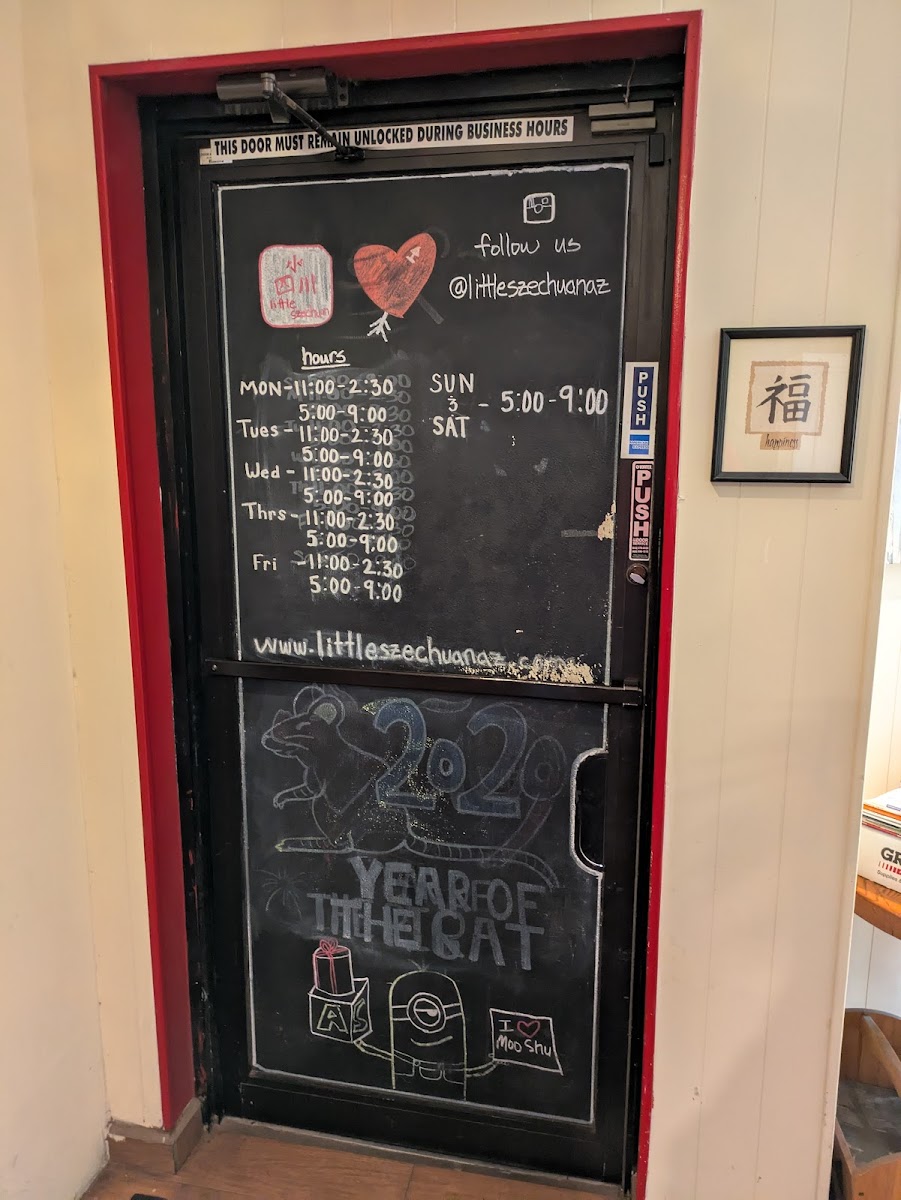 THIS DOOR MUST REMAIN UNLOCKED DURING BUSINESS HOURS
follow us
@littleszechuanaz
little
szechuan
hours
MON-11:00-2:30
5:00-9:00
Tues-11:00-2:30
5:00-9:00
Wed-11:00-2:30
5:00-9:00
Thrs-11:00-2:30
5:00-9:00
Fri -11:00-2:30
5:00-9:00
SUN
&
SAT
- 5:00-9:00
www.littleszechuanaz.com
PUSH
AMERICAN EXPRESS
PUSH
福
happiness
2020
YEAR OF
THE RAT
A S
I ♡
Moo Shu
GR